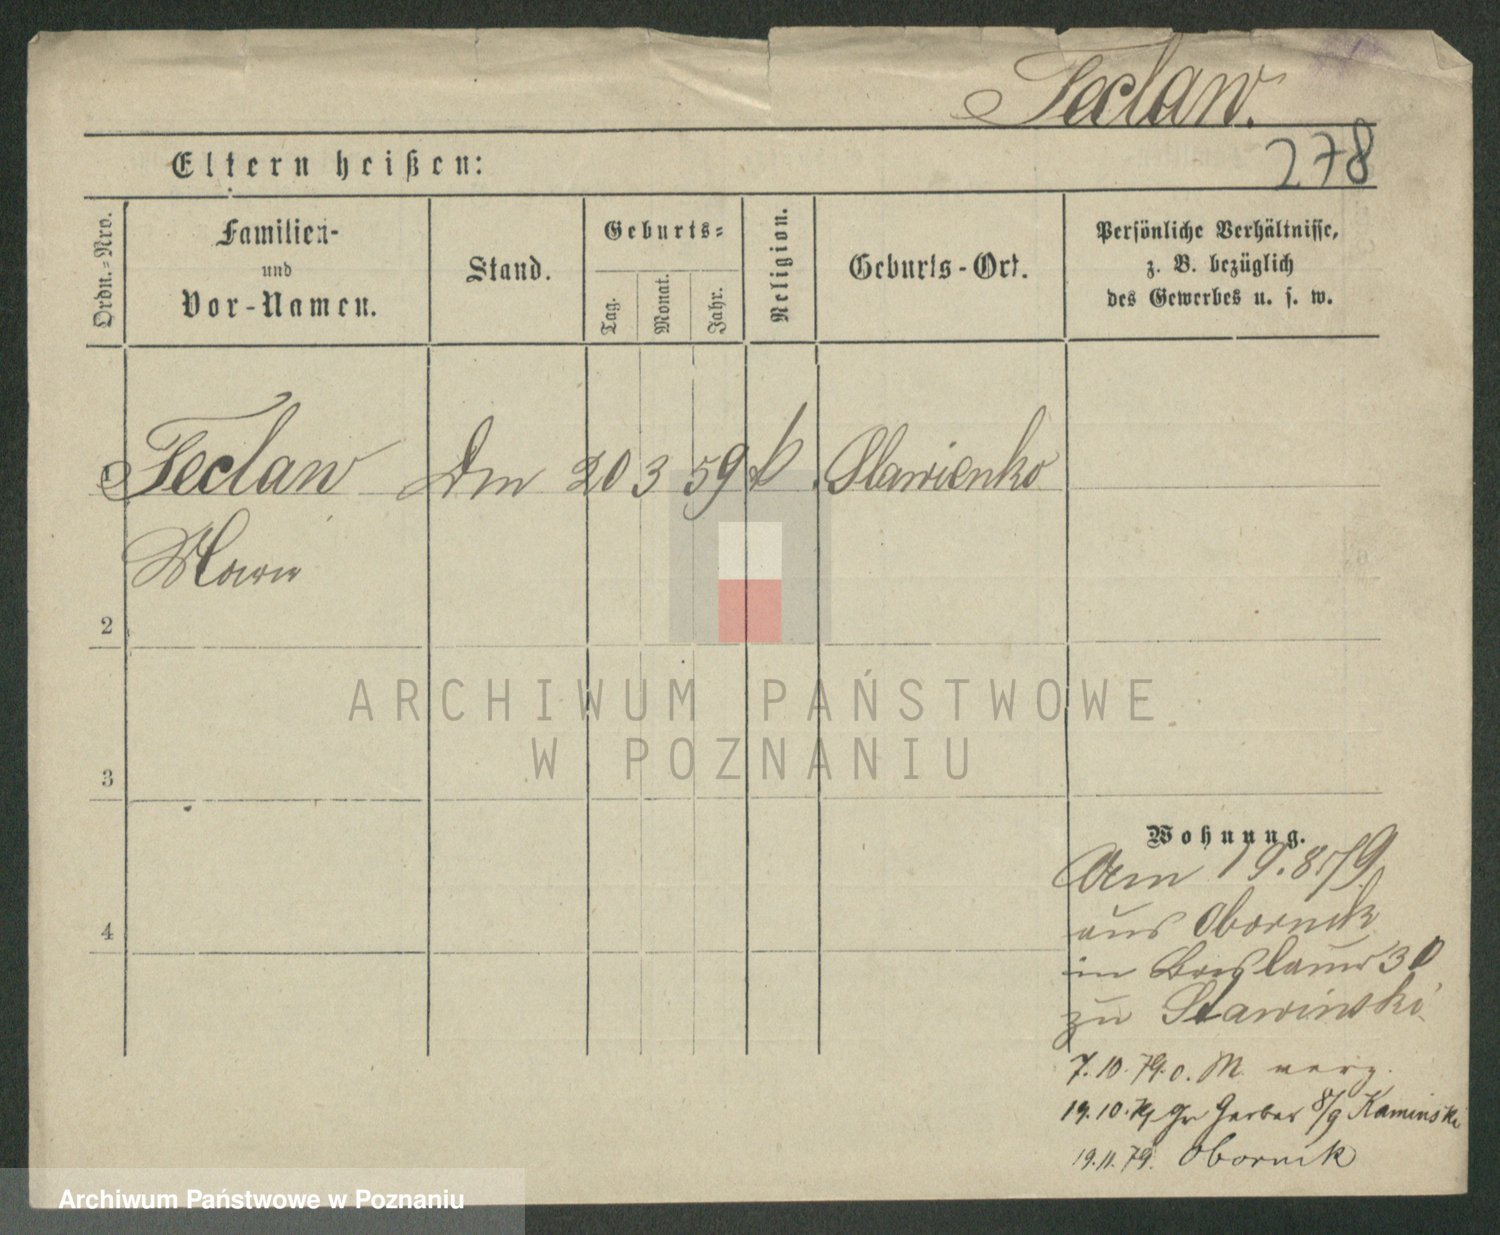 Teclaw.
278
Eltern heißen:
Ordn.-Nro.
Familien-
und
Vor-Namen.
Stand.
Geburts-
Tag.
Monat.
Jahr.
Religion.
Geburts-Ort.
Persönliche Verhältnisse,
z. B. bezüglich
des Gewerbes u. s. w.
1 Teclaw Dm 20 3 59 k. Slawienko
Marie
2
3
4
Wohnung.
Am 19.8.79
aus Obornik
in Breslauer 30
zu Slawinski
7.10.79. o. M. verz.
19.10.79 Gr Gerber 8/9 Kaminski
19.11.79. Obornik
ARCHIWUM PAŃSTWOWE
W POZNANIU
Archiwum Państwowe w Poznaniu